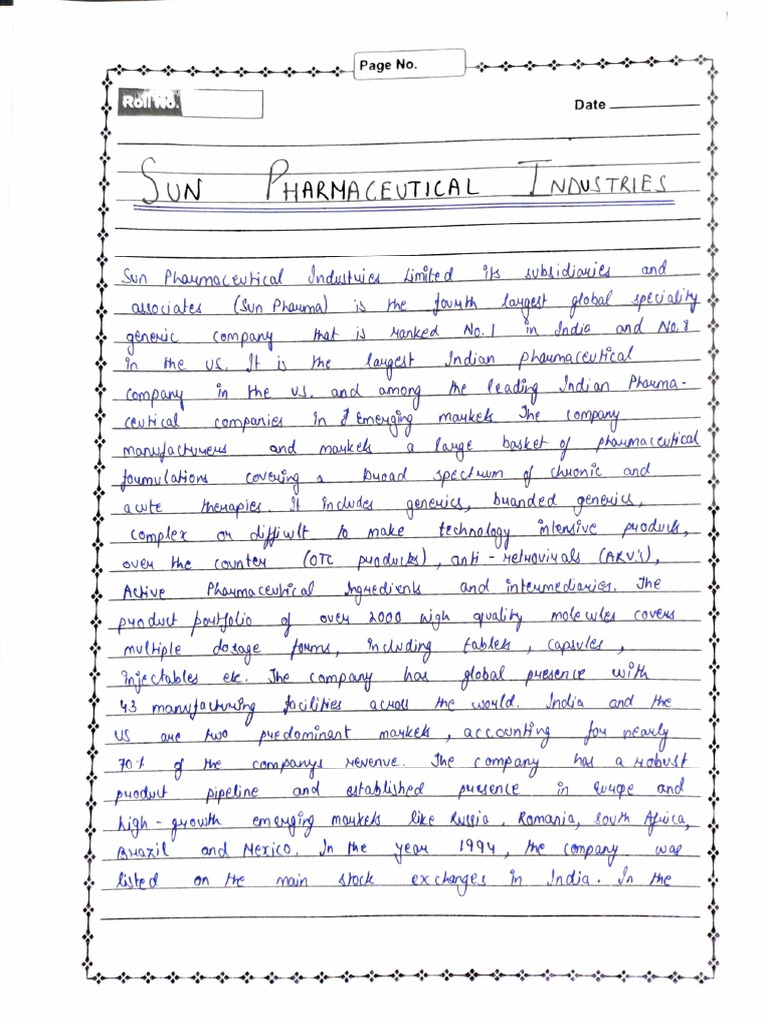 Page No.
Roll No.
Date
SUN PHARMACEUTICAL INDUSTRIES
Sun Pharmaceutical Industries Limited its subsidiaries and
associates (Sun Pharma) is the fourth largest global speciality
generic company that is ranked No.1 in India and No.8
in the US. It is the largest Indian pharmaceutical
company in the US. and among the leading Indian Pharma-
ceutical companies in Emerging markets. The company
manufacturers and markets a large basket of pharmaceutical
formulations covering a broad spectrum of chronic and
acute therapies. It includes generics, branded generics,
complex or difficult to make technology intensive products,
over the counter (OTC products), anti-retrovirals (ARV's),
Active Pharmaceutical Ingredients and intermediaries. The
product portfolio of over 2000 high quality molecules covers
multiple dosage forms, including tablets, capsules,
injectables etc. The company has global presence with
43 manufacturing facilities across the world. India and the
US are two predominant markets, accounting for nearly
70% of the companys revenue. The company has a robust
product pipeline and established presence in Europe and
high-growth emerging markets like Russia, Romania, South Africa,
Brazil and Mexico. In the year 1994, the company was
listed on the main stock exchanges in India. In the